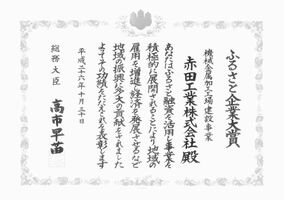 ふるさと企業大賞
機械金属加工場建設事業
赤田工業株式会社 殿
あなたはふるさと融資を活用し事業を
積極的に展開されることにより地域の
雇用を増進し経済を発展させるなど
地域の振興に多大の貢献をされました
よってその功績をたたえこれを表彰します
平成二十六年十月三十日
総務大臣 高市早苗